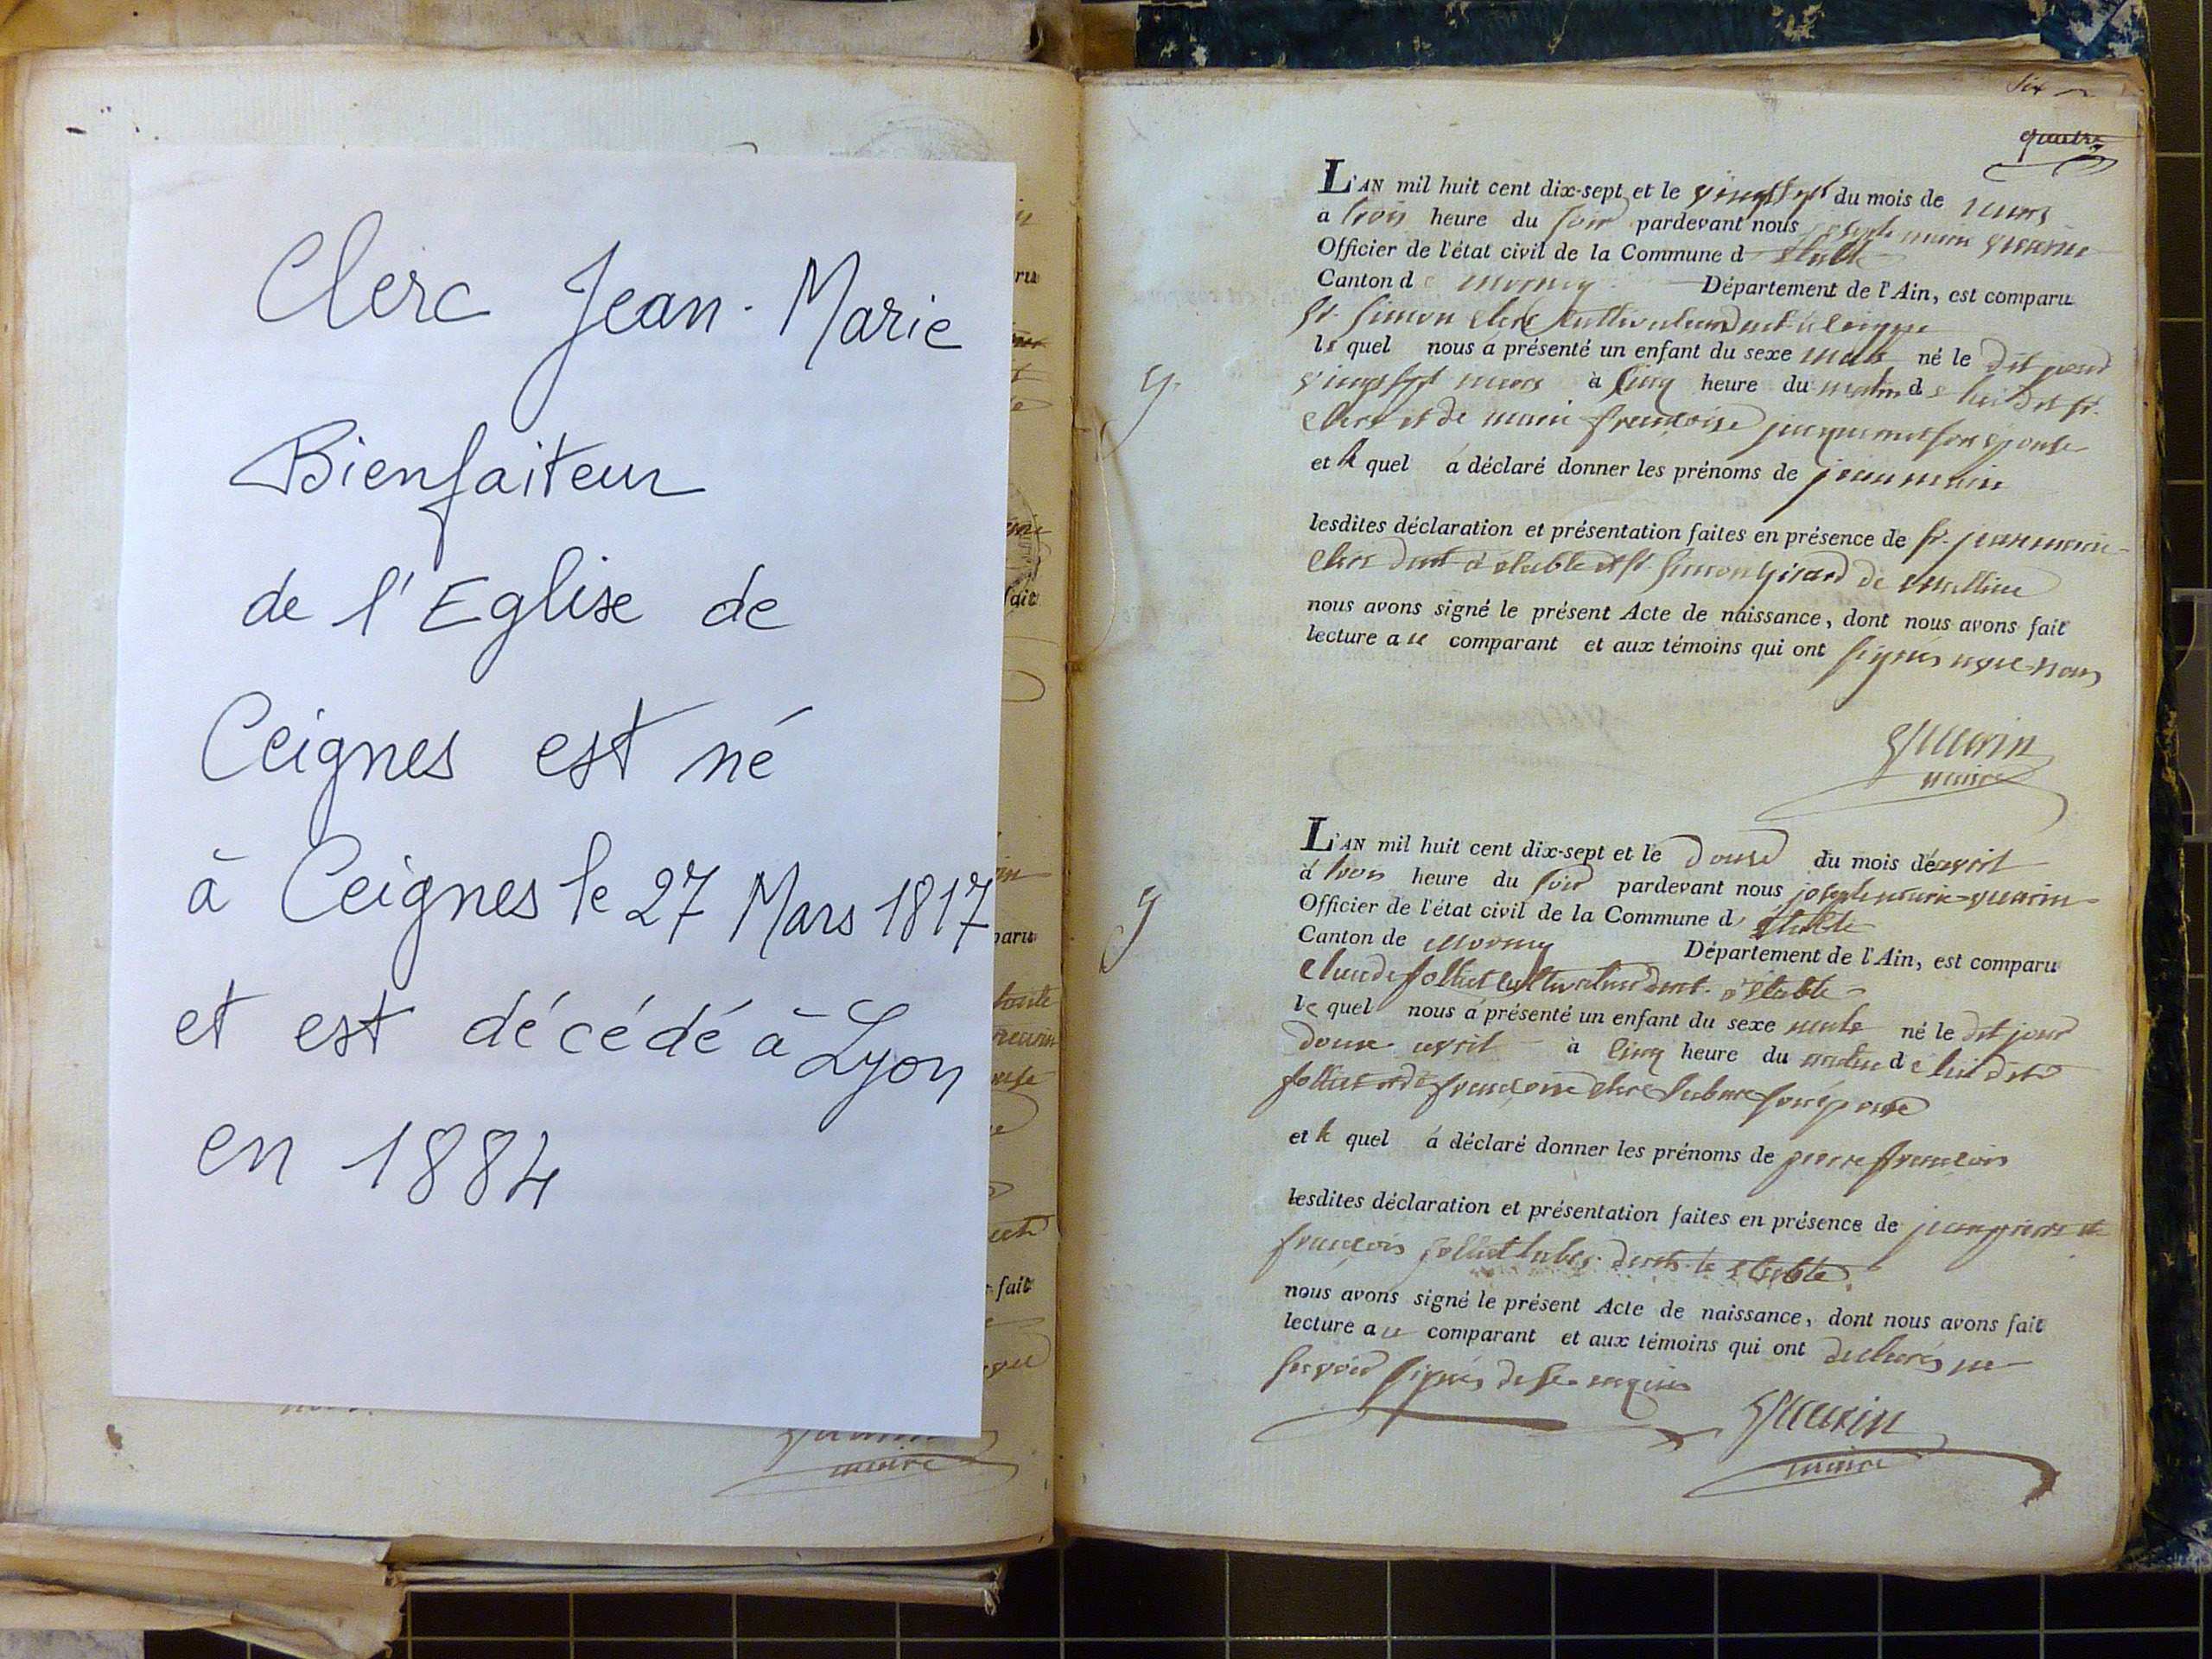 Clerc Jean-Marie
Bienfaiteur
de l'Eglise de
Ceignes est né
à Ceignes le 27 Mars 1817
et est décédé à Lyon
en 1884
maire
Six
quatre
L'AN mil huit cent dix-sept et le vingt sept du mois de mars
a trois heure du soir pardevant nous joseph marie guerin
Officier de l'état civil de la Commune d etable
Canton d Département de l'Ain, est comparu
sr. simon clerc cultivateur
le quel nous a présenté un enfant du sexe male né le dit jour
vingt sept mars à cinq heure du matin de lui dit sr.
clerc et de marie françoise jacquemet son epouse
et le quel a déclaré donner les prénoms de jean marie
lesdites déclaration et présentation faites en présence de sr. jean marie
clerc a etable et sr. simon girard de
nous avons signé le présent Acte de naissance, dont nous avons fait
lecture au comparant et aux témoins qui ont signés avec nous
guerin
maire
L'AN mil huit cent dix-sept et le douse du mois de avril
à trois heure du soir pardevant nous joseph marie guerin
Officier de l'état civil de la Commune d etable
Canton de Département de l'Ain, est comparu
claude folliet cultivateur a etable
le quel nous a présenté un enfant du sexe male né le dit jour
douse avril à cinq heure du matin de lui dit
folliet et de françoise clerc son epouse
et le quel a déclaré donner les prénoms de pierre françois
lesdites déclaration et présentation faites en présence de jean pierre et
françois folliet etable
nous avons signé le présent Acte de naissance, dont nous avons fait
lecture au comparant et aux témoins qui ont declarés ne
savoir signés de ce requis
guerin
maire